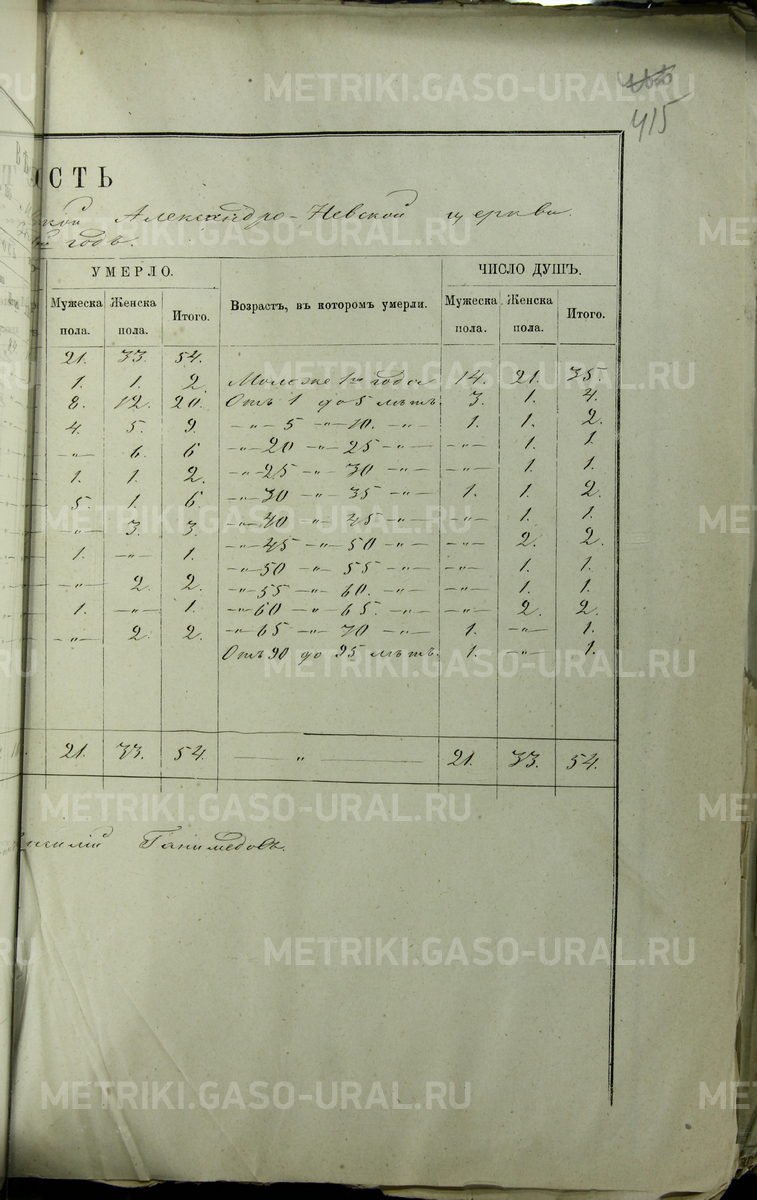 415
ОСТЬ
кой Александро-Невской церкви.
й годъ.
УМЕРЛО. ЧИСЛО ДУШЪ.
Мужеска пола. Женска пола. Итого. Возрастъ, въ которомъ умерли. Мужеска пола. Женска пола. Итого.
21. 33. 54.
1. 1. 2. Моложе 1го года 14. 21. 35.
8. 12. 20. Отъ 1 до 5 лѣтъ. 3. 1. 4.
4. 5. 9. —"— 5 —"— 10. —"— 1. 1. 2.
—"— 6. 6 —"— 20 —"— 25 —"— —"— 1. 1.
1. 1. 2. —"— 25 —"— 30 —"— —"— 1. 1.
5. 1. 6 —"— 30 —"— 35 —"— 1. 1. 2.
—"— 3. 3. —"— 40 —"— 45 —"— —"— 1. 1.
1. —"— 1. —"— 45 —"— 50 —"— —"— 2. 2.
—"— 2. 2. —"— 50 —"— 55 —"— —"— 1. 1.
1. —"— 1. —"— 55 —"— 60. —"— —"— 1. 1.
—"— 2. 2. —"— 60 —"— 65. —"— —"— 2. 2.
—"— 65 —"— 70 —"— 1. —"— 1.
Отъ 90 до 95 лѣтъ. 1. —"— 1.
21. 33. 54. — " — 21. 33. 54.
Ганимедовъ.
METRIKI.GASO-URAL.RU